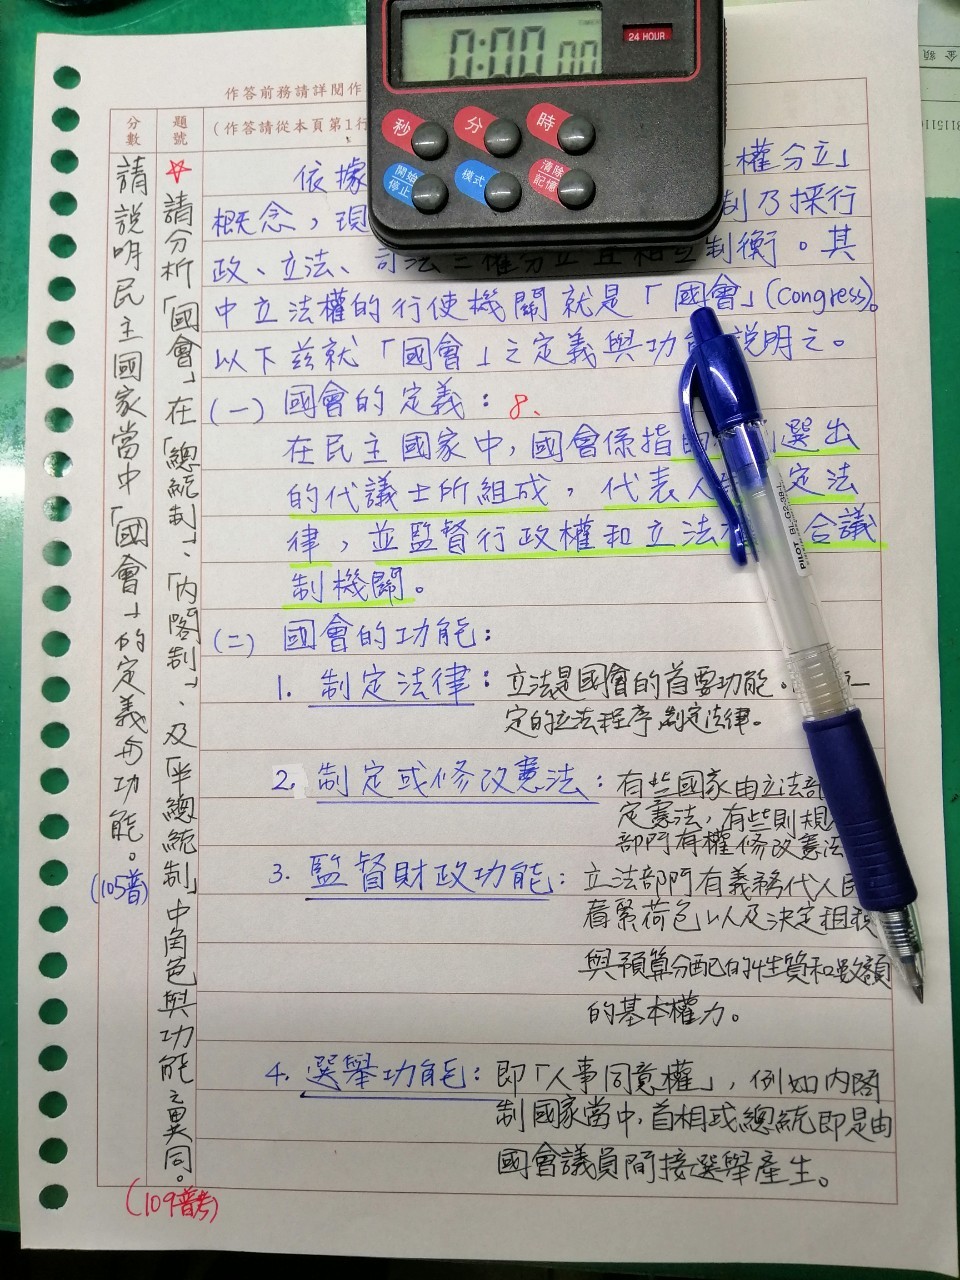 0:00 00
24 HOUR
秒
分
時
開始
停止
模式
清除
記憶
金額
作答前務請詳閱作
分數
題號
(作答請從本頁第1行
請說明民主國家當中「國會」的定義與功能。
(105普)
☆請分析「國會」在「總統制」、「內閣制」、及「半總統制」中角色與功能之異同。
(109普考)
依據 權分立」
概念,現 制乃採行
政、立法、司法三權分立且相互制衡。其
中立法權的行使機關就是「國會」(Congress)。
以下茲就「國會」之定義與功 說明之。
(一)國會的定義: 8、
在民主國家中,國會係指由 選出
的代議士所組成,代表人 定法
律,並監督行政權和立法 合議
制機關。
(二)國會的功能:
1. 制定法律: 立法是國會的首要功能。 一
定的立法程序,制定法律。
2. 制定或修改憲法: 有些國家由立法部
定憲法,有些則規
部門有權修改憲法
3. 監督財政功能: 立法部門有義務代人民
看緊荷包以及決定租稅
與預算分配的性質和數額
的基本權力。
4. 選舉功能: 即「人事同意權」,例如內閣
制國家當中,首相或總統即是由
國會議員間接選舉產生。
PILOT